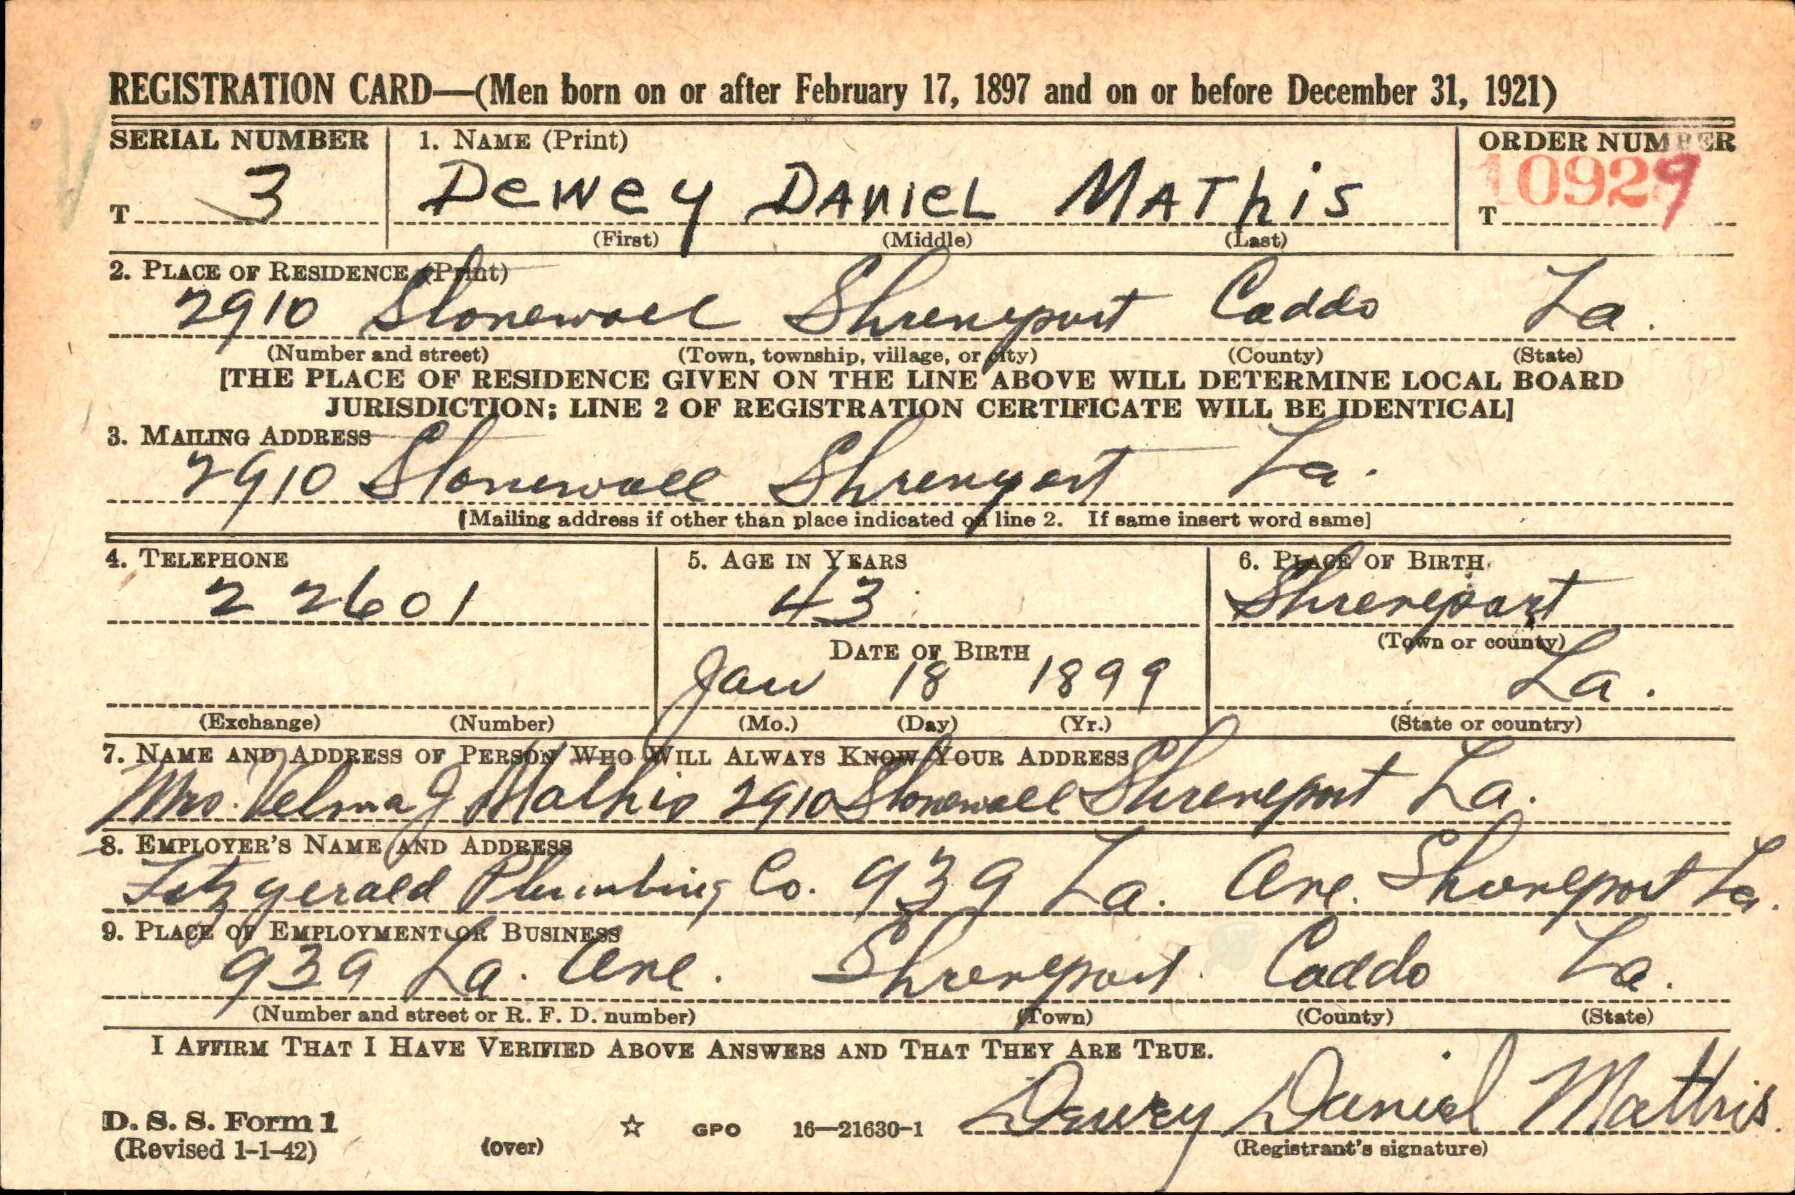 REGISTRATION CARD—(Men born on or after February 17, 1897 and on or before December 31, 1921)
SERIAL NUMBER 1. NAME (Print) ORDER NUMBER
T 3 Dewey Daniel Mathis T 10929
(First) (Middle) (Last)
2. PLACE OF RESIDENCE (Print)
2910 Stonewall Shreveport Caddo La.
(Number and street) (Town, township, village, or city) (County) (State)
[THE PLACE OF RESIDENCE GIVEN ON THE LINE ABOVE WILL DETERMINE LOCAL BOARD
JURISDICTION; LINE 2 OF REGISTRATION CERTIFICATE WILL BE IDENTICAL]
3. MAILING ADDRESS
2910 Stonewall Shreveport La.
[Mailing address if other than place indicated on line 2. If same insert word same]
4. TELEPHONE 5. AGE IN YEARS 6. PLACE OF BIRTH
2 2601 43 Shreveport
DATE OF BIRTH (Town or county)
Jan 18 1899 La.
(Exchange) (Number) (Mo.) (Day) (Yr.) (State or country)
7. NAME AND ADDRESS OF PERSON WHO WILL ALWAYS KNOW YOUR ADDRESS
Mrs. Velma J Mathis 2910 Stonewall Shreveport La.
8. EMPLOYER'S NAME AND ADDRESS
Fitzgerald Plumbing Co. 939 La. Ave. Shreveport La.
9. PLACE OF EMPLOYMENT OR BUSINESS
939 La. Ave. Shreveport Caddo La.
(Number and street or R. F. D. number) (Town) (County) (State)
I AFFIRM THAT I HAVE VERIFIED ABOVE ANSWERS AND THAT THEY ARE TRUE.
Dewey Daniel Mathis
D. S. S. Form 1
(Revised 1-1-42) (over) ☆ GPO 16—21630-1 (Registrant's signature)